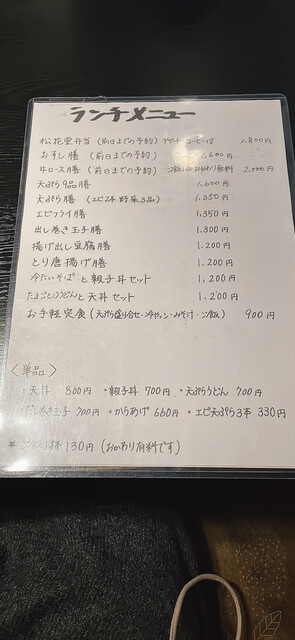 ランチメニュー
松花堂弁当 (前日までの予約) デザート コーヒー付 1.800円
おすし膳 (前日までの予約) 1.600円
牛ロース膳 (前日までの予約) おかわり無料 2.000円
天ぷら9品膳 1.600円
天ぷら膳 (エビ2本 野菜3品) 1.350円
エビフライ膳 1.350円
出し巻き玉子膳 1.300円
揚げ出し豆腐膳 1.200円
とり唐揚げ膳 1.200円
冷たいそばと親子丼セット 1.200円
たまごとじうどんと天丼セット 1.200円
お手軽定食 (天ぷら盛り合せ・冷ヤッコ・みそ汁・ご飯) 900円
〈単品〉
・天丼 800円 ・親子丼 700円 ・天ぷらうどん 700円
・だし巻き玉子 700円 ・からあげ 660円 ・エビ天ぷら3本 330円
* 130円 (おかわり有料です)